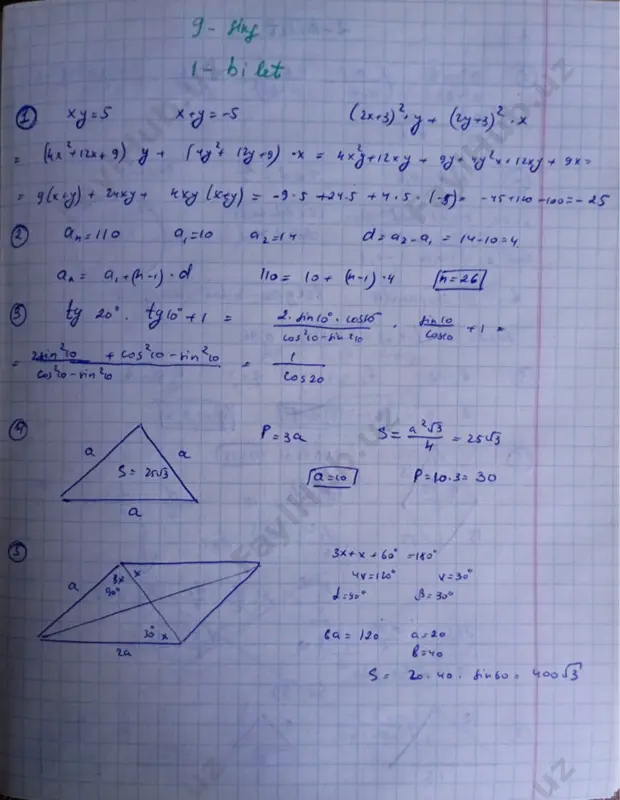 9 - sinf
1 - bilet
① xy = 5 x+y = -5 (2x+3)²·y + (2y+3)²·x
= (4x²+12x+9) y + (4y²+12y+9)·x = 4x²y+12xy + 9y+4y²x+12xy + 9x=
= 9(x+y) + 24xy + 4xy (x+y) = -9·5 +24·5 +4·5·(-5)= -45+120-100=-25
② aₙ=110 a₁=10 a₂=14 d=a₂-a₁ = 14-10=4
aₙ= a₁+(n-1)·d 110= 10+(n-1)·4 n=26
③ tg 20° · tg10°+1 = 2·sin10°·cos10°/cos²10-sin²10 · sin10/cos10 +1 =
= 2sin²10 + cos²10-sin²10/cos²10-sin²10 = 1/cos20
④ a a S = 25√3 a P=3a S= a²√3/4 = 25√3
a=10 P=10·3= 30
5 3x+x+60°=180°
a 3x x 90° 4x=120° x=30°
α=90° β=30°
30° x 2a 6a=120 a=20
b=40
S= 20·40·sin60= 400√3
FaylHub.uz